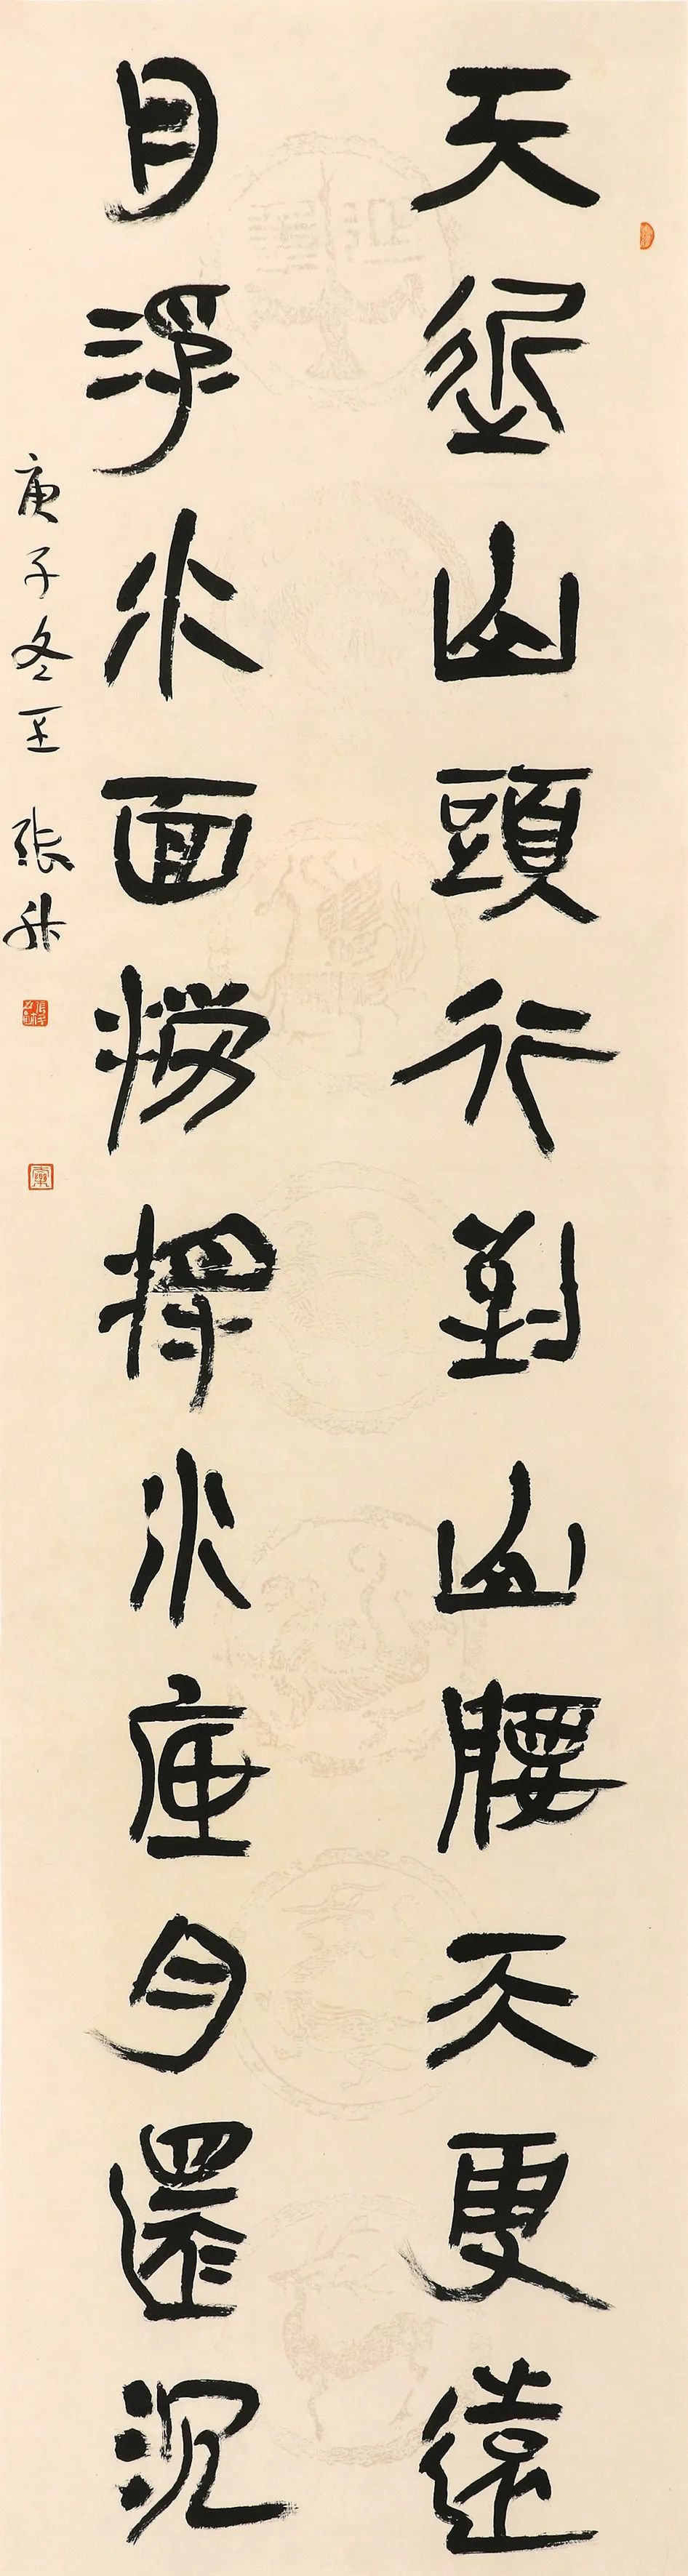 天近山頭行到山腰天更遠
月浮水面撈將水底月還沉
庚子冬玉張升